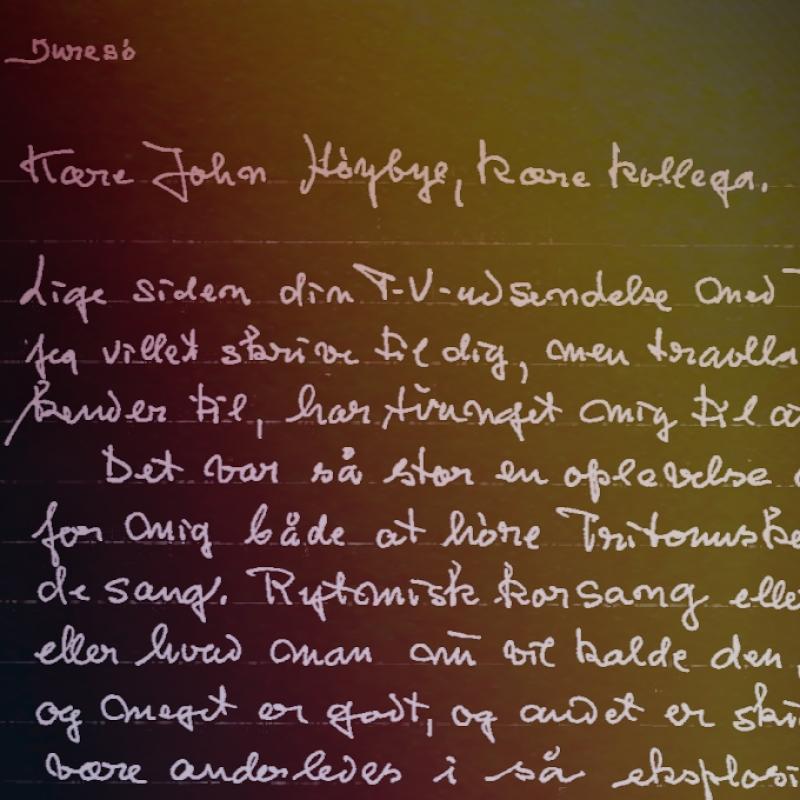 Furesø
Kære John Høybye, kære kollega.
Lige siden din T-V-udsendelse med
jeg villet skrive til dig, men
kender til, har tvunget mig til
Det var så stor en oplevelse
for mig både at høre
de sang. Rytmisk korsang
eller hvad man nu vil kalde den,
og meget er godt, og andet er
være anderledes i så